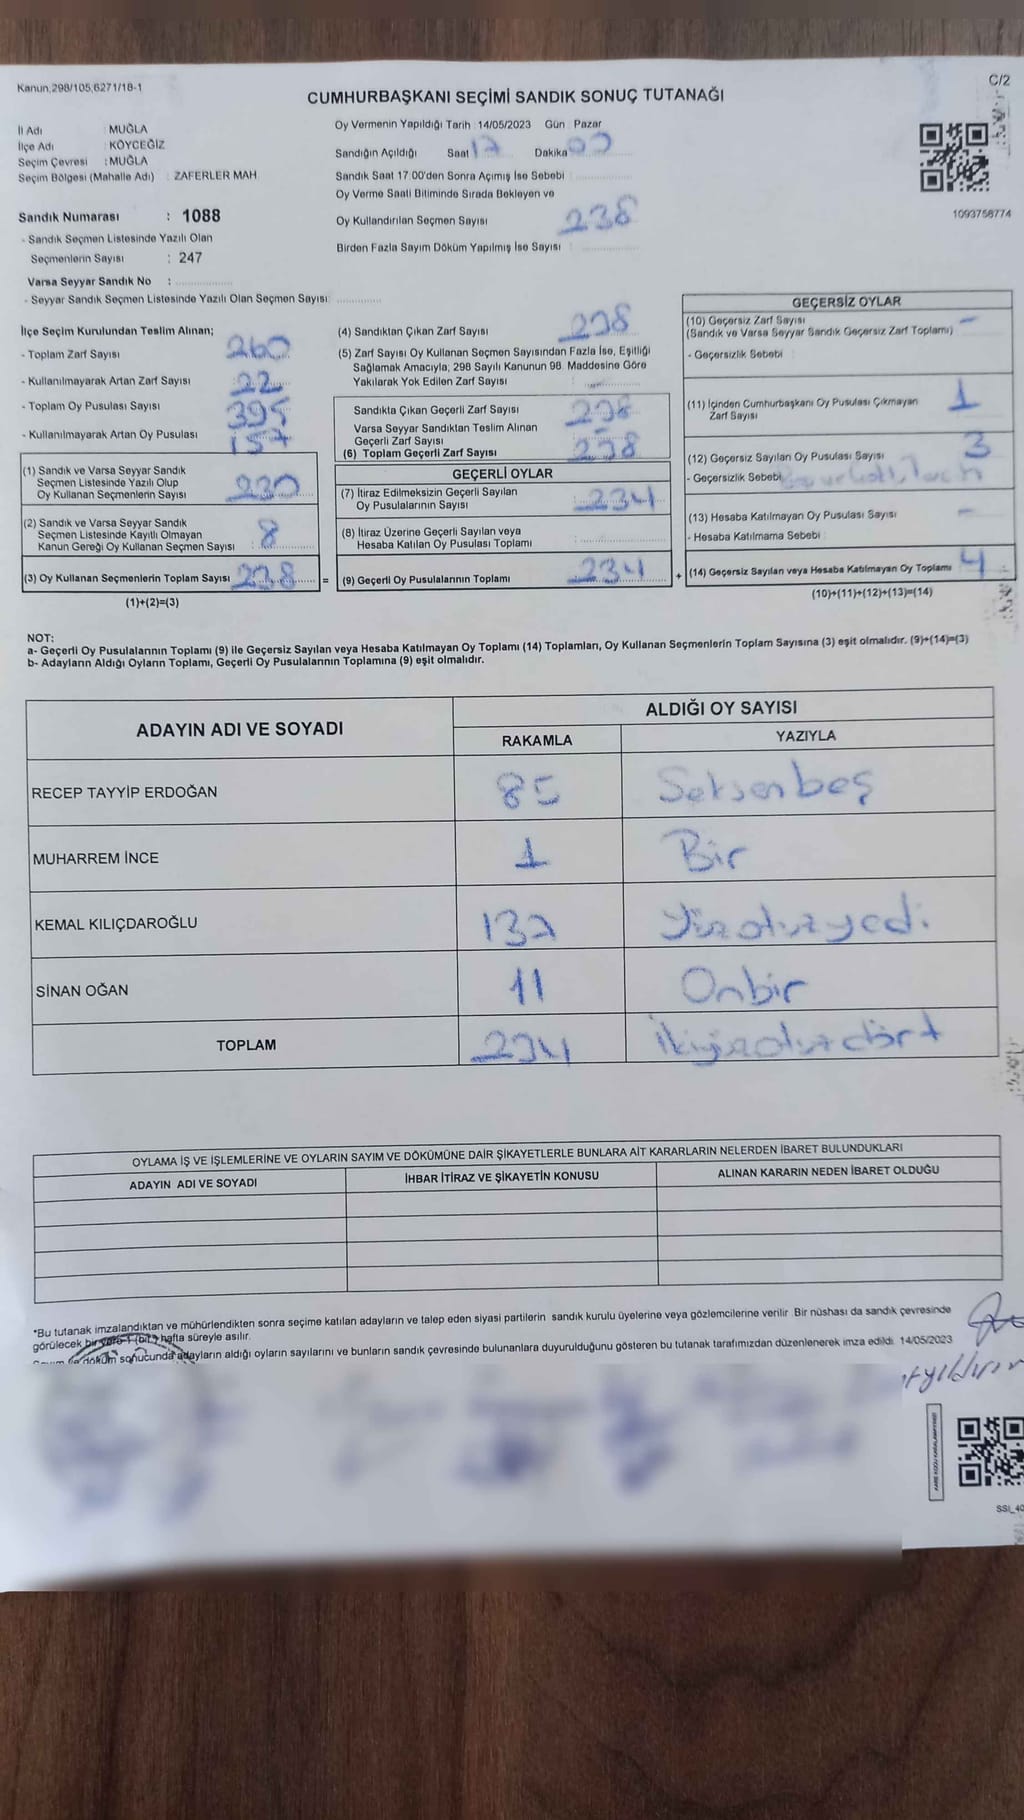 Kanun,298/105,6271/18-1
C/2
CUMHURBAŞKANI SEÇİMİ SANDIK SONUÇ TUTANAĞI
İl Adı : MUĞLA
İlçe Adı : KÖYCEĞİZ
Seçim Çevresi : MUĞLA
Seçim Bölgesi (Mahalle Adı) : ZAFERLER MAH.
Sandık Numarası : 1088
- Sandık Seçmen Listesinde Yazılı Olan
Seçmenlerin Sayısı : 247
Varsa Seyyar Sandık No :
- Seyyar Sandık Seçmen Listesinde Yazılı Olan Seçmen Sayısı:
Oy Vermenin Yapıldığı Tarih : 14/05/2023 Gün : Pazar
Sandığın Açıldığı Saat 17 Dakika 00
Sandık Saat 17:00'den Sonra Açımış İse Sebebi :
Oy Verme Saati Bitiminde Sırada Bekleyen ve
Oy Kullandırılan Seçmen Sayısı 238
Birden Fazla Sayım Döküm Yapılmış İse Sayısı :
1093756774
İlçe Seçim Kurulundan Teslim Alınan;
- Toplam Zarf Sayısı 260
- Kullanılmayarak Artan Zarf Sayısı : 22
- Toplam Oy Pusulası Sayısı : 395
- Kullanılmayarak Artan Oy Pusulası : 157
(1) Sandık ve Varsa Seyyar Sandık
Seçmen Listesinde Yazılı Olup
Oy Kullanan Seçmenlerin Sayısı 230
(2) Sandık ve Varsa Seyyar Sandık
Seçmen Listesinde Kayıtlı Olmayan
Kanun Gereği Oy Kullanan Seçmen Sayısı : 8
(3) Oy Kullanan Seçmenlerin Toplam Sayısı : 238
(1)+(2)=(3)
(4) Sandıktan Çıkan Zarf Sayısı 238
(5) Zarf Sayısı Oy Kullanan Seçmen Sayısından Fazla İse, Eşitliği
Sağlamak Amacıyla; 298 Sayılı Kanunun 98. Maddesine Göre
Yakılarak Yok Edilen Zarf Sayısı : -
Sandıkta Çıkan Geçerli Zarf Sayısı : 238
Varsa Seyyar Sandıktan Teslim Alınan
Geçerli Zarf Sayısı
(6) Toplam Geçerli Zarf Sayısı : 238
GEÇERLİ OYLAR
(7) İtiraz Edilmeksizin Geçerli Sayılan
Oy Pusulalarının Sayısı : 234
(8) İtiraz Üzerine Geçerli Sayılan veya
Hesaba Katılan Oy Pusulası Toplamı :
= (9) Geçerli Oy Pusulalarının Toplamı : 234
GEÇERSİZ OYLAR
(10) Geçersiz Zarf Sayısı -
(Sandık ve Varsa Seyyar Sandık Geçersiz Zarf Toplamı)
- Geçersizlik Sebebi :
(11) İçinden Cumhurbaşkanı Oy Pusulası Çıkmayan
Zarf Sayısı 1
(12) Geçersiz Sayılan Oy Pusulası Sayısı : 3
- Geçersizlik Sebebi
(13) Hesaba Katılmayan Oy Pusulası Sayısı : -
- Hesaba Katılmama Sebebi :
+ (14) Geçersiz Sayılan veya Hesaba Katılmayan Oy Toplamı 4
(10)+(11)+(12)+(13)=(14)
NOT:
a- Geçerli Oy Pusulalarının Toplamı (9) ile Geçersiz Sayılan veya Hesaba Katılmayan Oy Toplamı (14) Toplamları, Oy Kullanan Seçmenlerin Toplam Sayısına (3) eşit olmalıdır. (9)+(14)=(3)
b- Adayların Aldığı Oyların Toplamı, Geçerli Oy Pusulalarının Toplamına (9) eşit olmalıdır.
ADAYIN ADI VE SOYADI
ALDIĞI OY SAYISI
RAKAMLA YAZIYLA
RECEP TAYYİP ERDOĞAN 85 Seksenbeş
MUHARREM İNCE 1 Bir
KEMAL KILIÇDAROĞLU 137 Yüzotuzyedi
SİNAN OĞAN 11 Onbir
TOPLAM 234 İkiyüzotuzdört
OYLAMA İŞ VE İŞLEMLERİNE VE OYLARIN SAYIM VE DÖKÜMÜNE DAİR ŞİKAYETLERLE BUNLARA AİT KARARLARIN NELERDEN İBARET BULUNDUKLARI
ADAYIN ADI VE SOYADI İHBAR İTİRAZ VE ŞİKAYETİN KONUSU ALINAN KARARIN NEDEN İBARET OLDUĞU
*Bu tutanak imzalandıktan ve mühürlendikten sonra seçime katılan adayların ve talep eden siyasi partilerin sandık kurulu üyelerine veya gözlemcilerine verilir. Bir nüshası da sandık çevresinde
görülecek bir yere 1 (bir) hafta süreyle asılır.
döküm sonucunda adayların aldığı oyların sayılarını ve bunların sandık çevresinde bulunanlara duyurulduğunu gösteren bu tutanak tarafımızdan düzenlenerek imza edildi. 14/05/2023